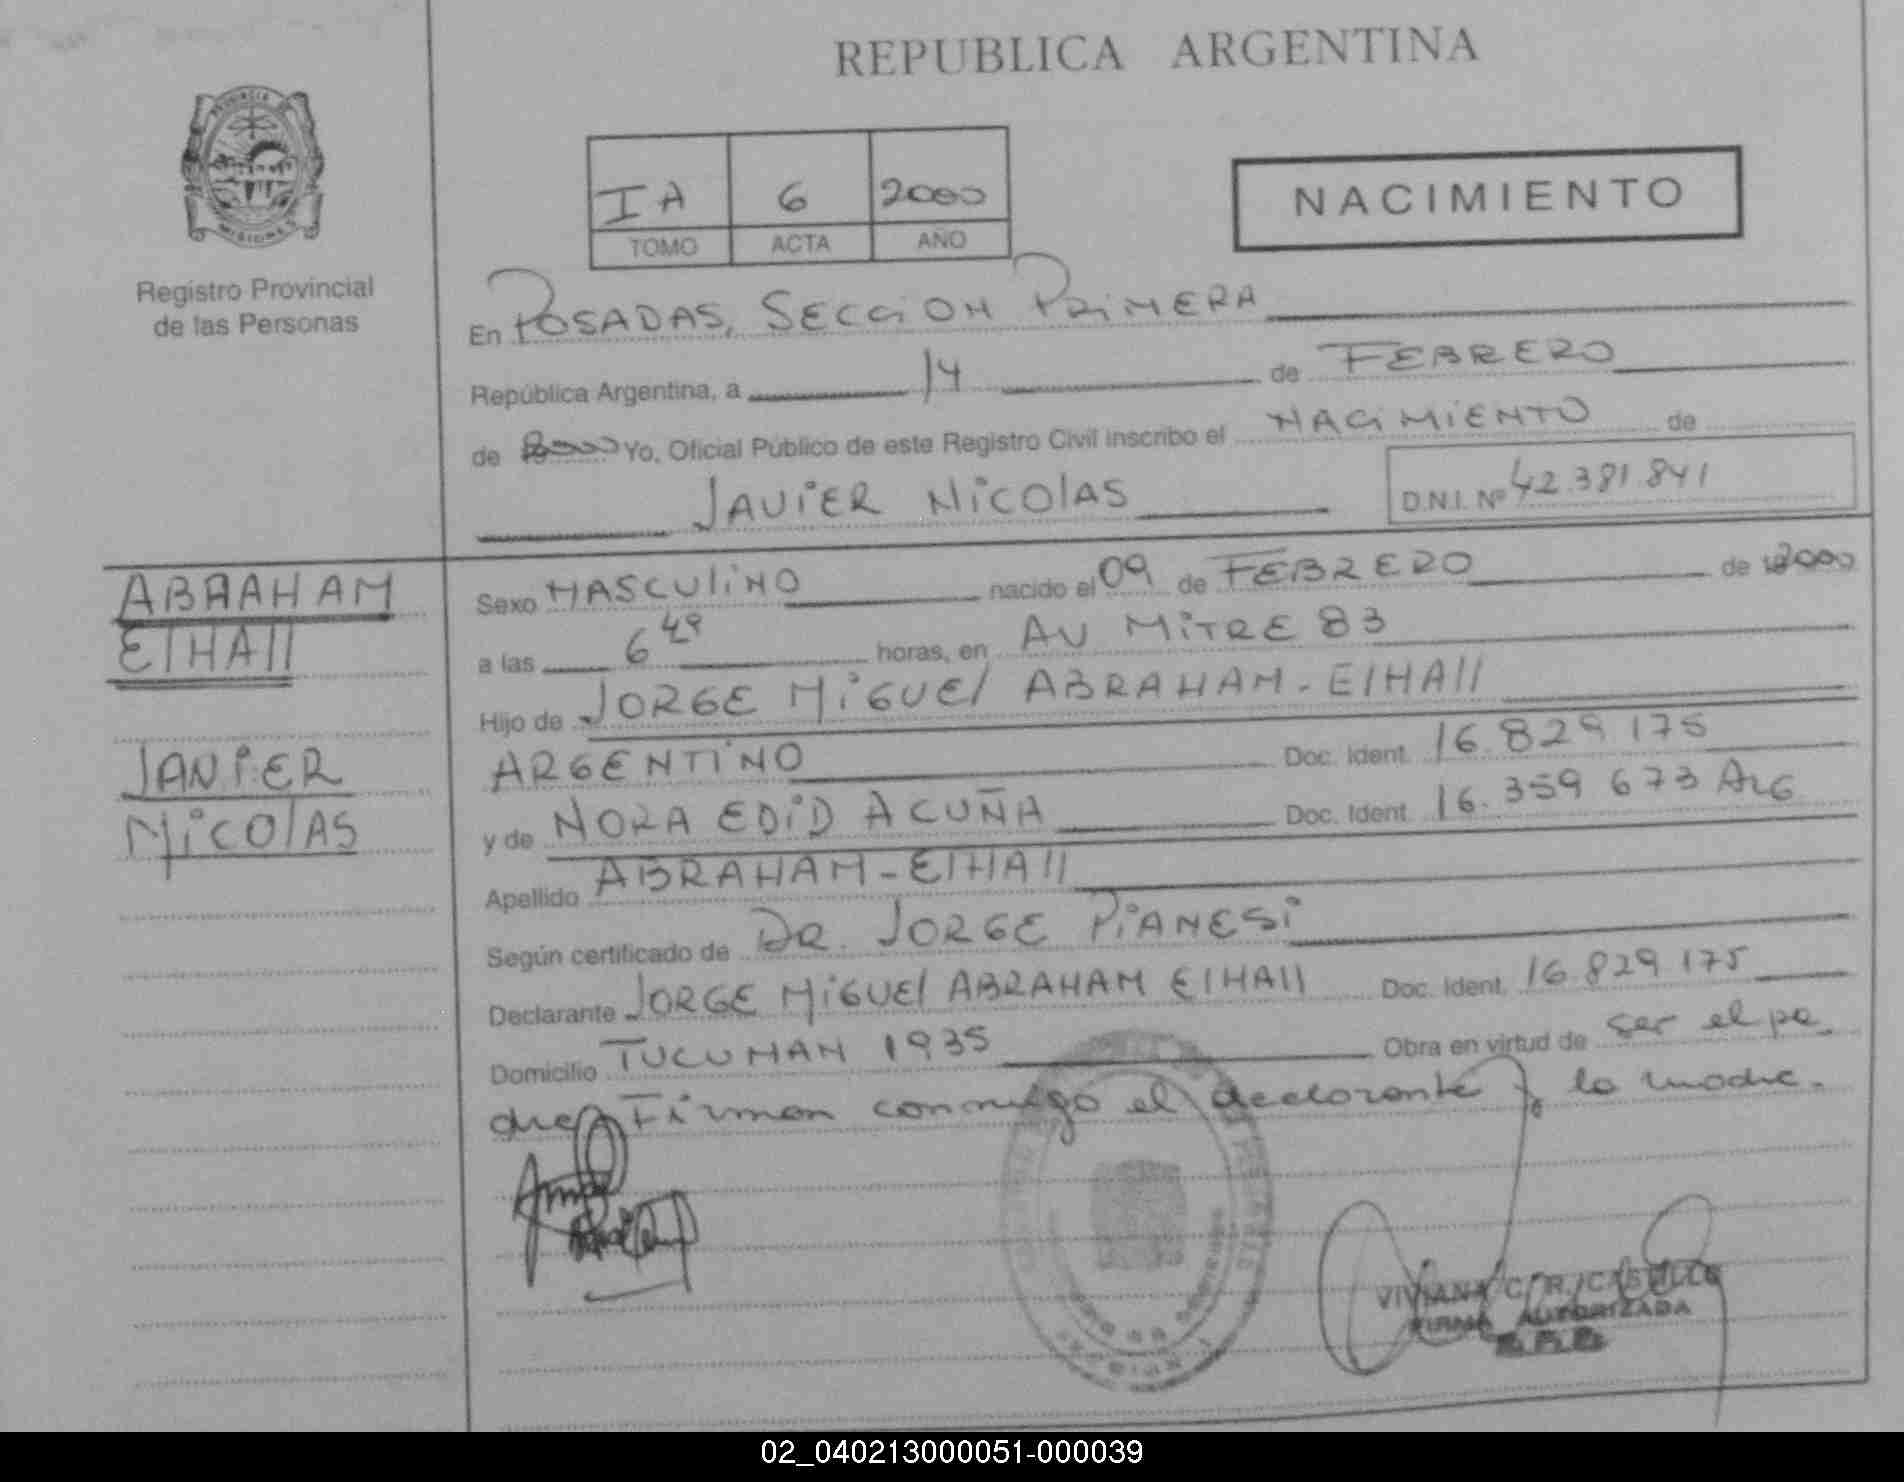 REPUBLICA ARGENTINA
PROVINCIA DE
MISIONES
Registro Provincial
de las Personas
IA 6 2000
TOMO ACTA AÑO
NACIMIENTO
En POSADAS, SECCION PRIMERA
República Argentina, a 14 de FEBRERO
de 2000 Yo, Oficial Público de este Registro Civil inscribo el NACIMIENTO de
JAVIER NICOLAS D.N.I. Nº 42.381.841
ABRAHAM
ElHAll
JAVIER
NICOlAS
Sexo MASCULINO nacido el 09 de FEBRERO de 2000
a las 6 49 horas, en AV MITRE 83
Hijo de JORGE MIGUEl ABRAHAM-ElHAll
ARGENTINO Doc. Ident. 16.829.175
y de NORA EDID ACUÑA Doc. Ident. 16.359.673 ARG
Apellido ABRAHAM-ElHAll
Según certificado de DR. JORGE PIANESI
Declarante JORGE MIGUEl ABRAHAM ElHAll Doc. Ident. 16.829.175
Domicilio TUCUMAN 1935 Obra en virtud de ser el pa
dre. Firman conmigo el declarante y la madre.
VIVIANA C. R. CASTILLO
FIRMA AUTORIZADA
02_040213000051-000039